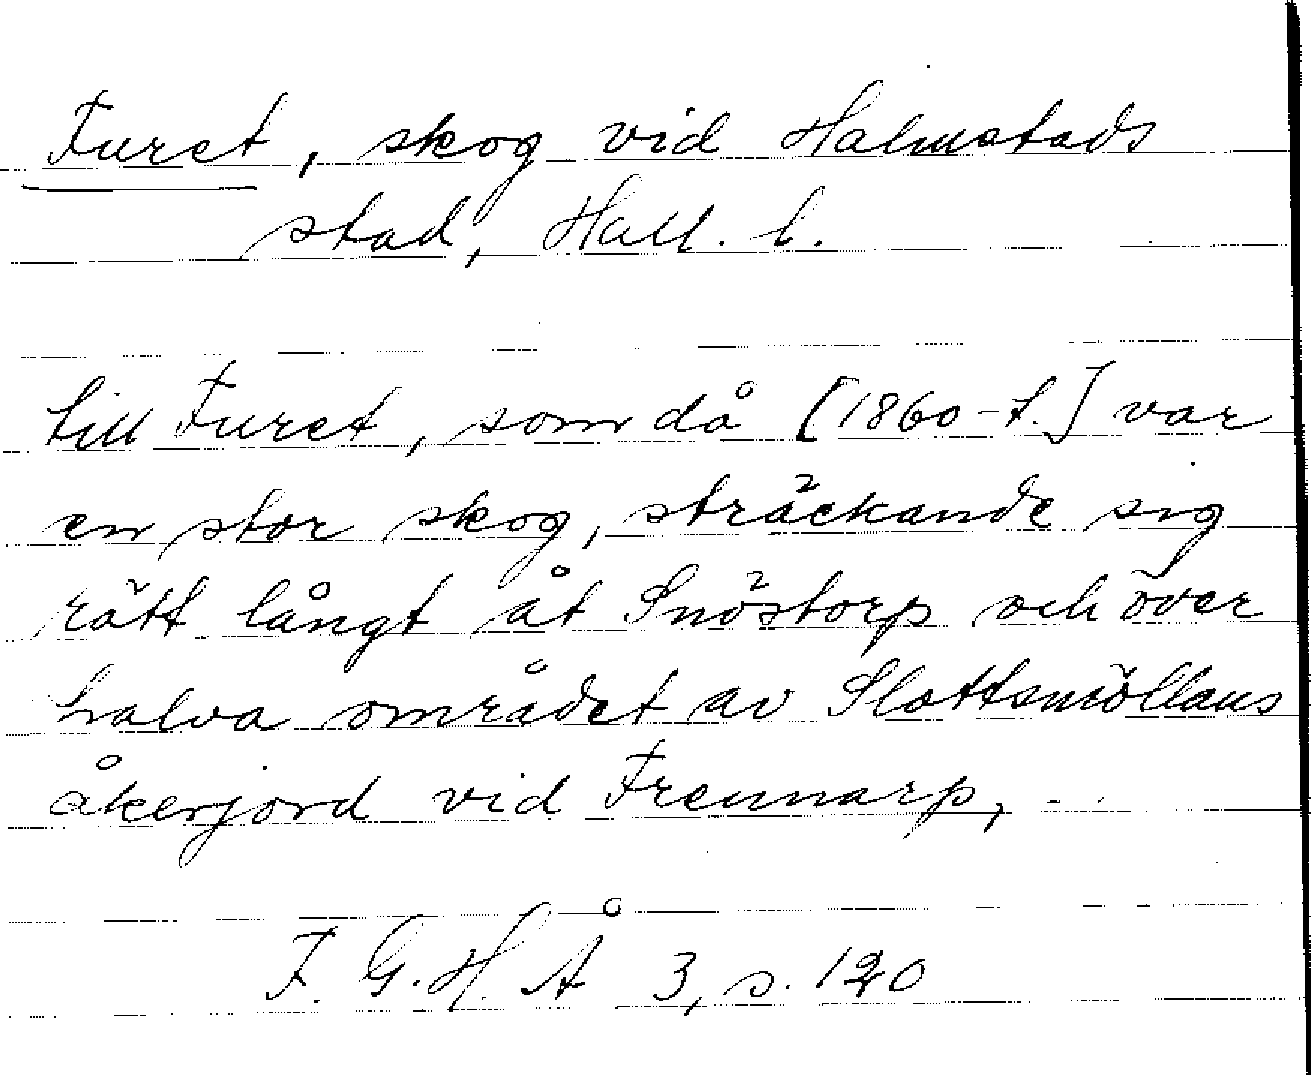 Furet, skog vid Halmstads
stad, Hall. l.
till Furet, som då [1860-t.] var
en stor skog, sträckande sig
rätt långt åt Snöstorp och över
halva området av Slottsmöllans
åkerjord vid Frennarp, - - -
F. G. H. Å 3, s. 120